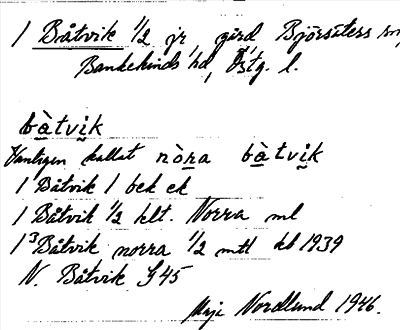 1 Båtvik 1/2 jr gärd Björsäters sn,
Bankekinds hd, Östg. l.
bàtvik
Vanligen kallat nòra bàtvik
1 Båtvik 1 bek ek
1 Båtvik 1/2 klt. Norra ml
1³ Båtvik norra 1/2 mtl kb 1939
N. Båtvik G 45
Maja Nordlund 1946.